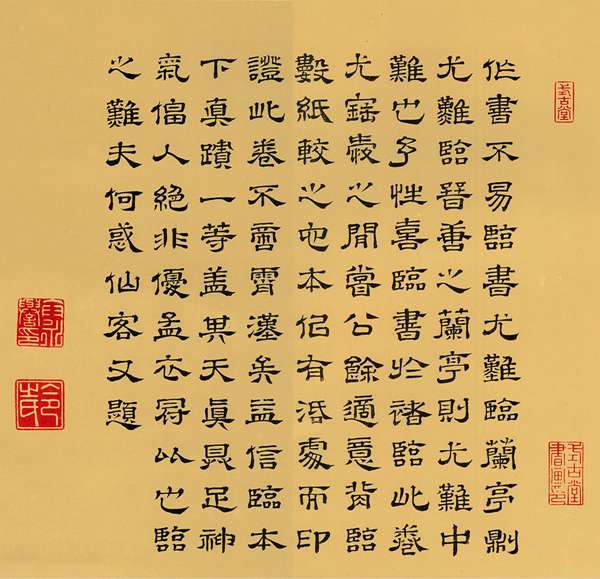 作書不易臨書尤難臨蘭亭則
尤難臨晉善之蘭亭則尤難中
難也予性喜臨書於褚臨此卷
尤歲之間嘗公餘適意背臨
數紙較之他本佀有活處而印
證此卷不啻霄漢矣益信臨本
下真蹟一等蓋其天真具足神
氣偪人絕非優孟衣冠以也臨
之難夫何惑仙客又題